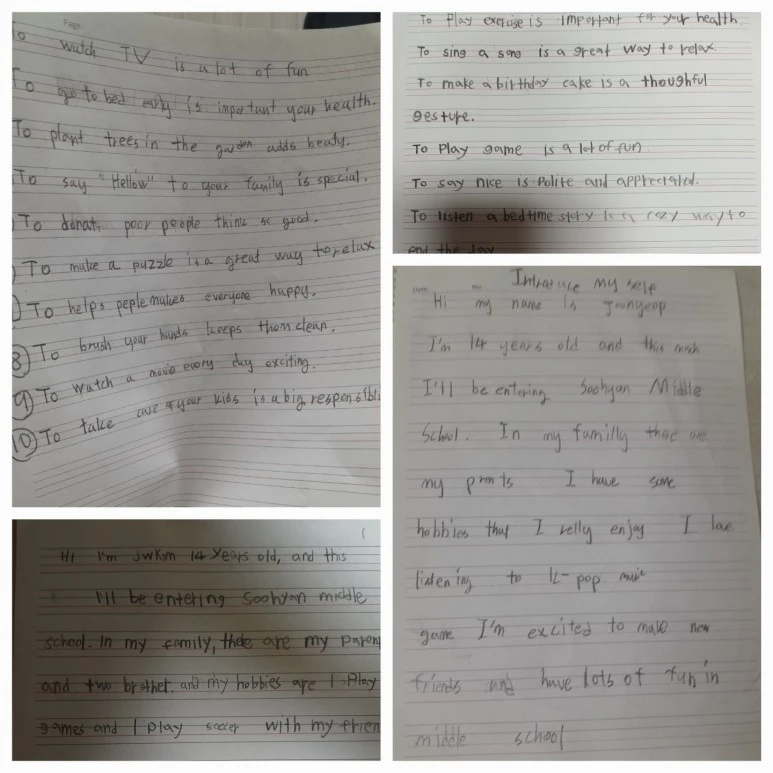 To watch TV is a lot of fun
To go to bed early is important your health.
To plant trees in the garden adds beaty.
To say "Hellow" to your family is special.
To donat poor people think so good.
To make a puzzle is a great way to relax
To helps peple makes everyone happy.
8 To brush your hands keeps them clean.
9 To watch a movie every day exciting.
10 To take care of your kids is a big responsibli
To Play exercise is important for your health
To sing a song is a great way to relax.
To make a birthday cake is a thoughful
gesture.
To Play game is a lot of fun
To say nice is Polite and appreciated.
To listen a bedtime story is a cozy way to
end the day
Introduce my self
Hi my name is Joonyeop
I'm 14 years old and this
I'll be entering Soohyan Middle
School. In my familly there are
my I have some
hobbies that I relly enjoy I love
listening to K-pop music
game I'm excited to make new
friends and have lots of fun in
middle school
Hi I'm JwKim 14 years old, and this
I'll be entering Soohyan middle
school. In my family, there are my Paren
and two brother. and my hobbies are I Play
games and I play soccer with my frien